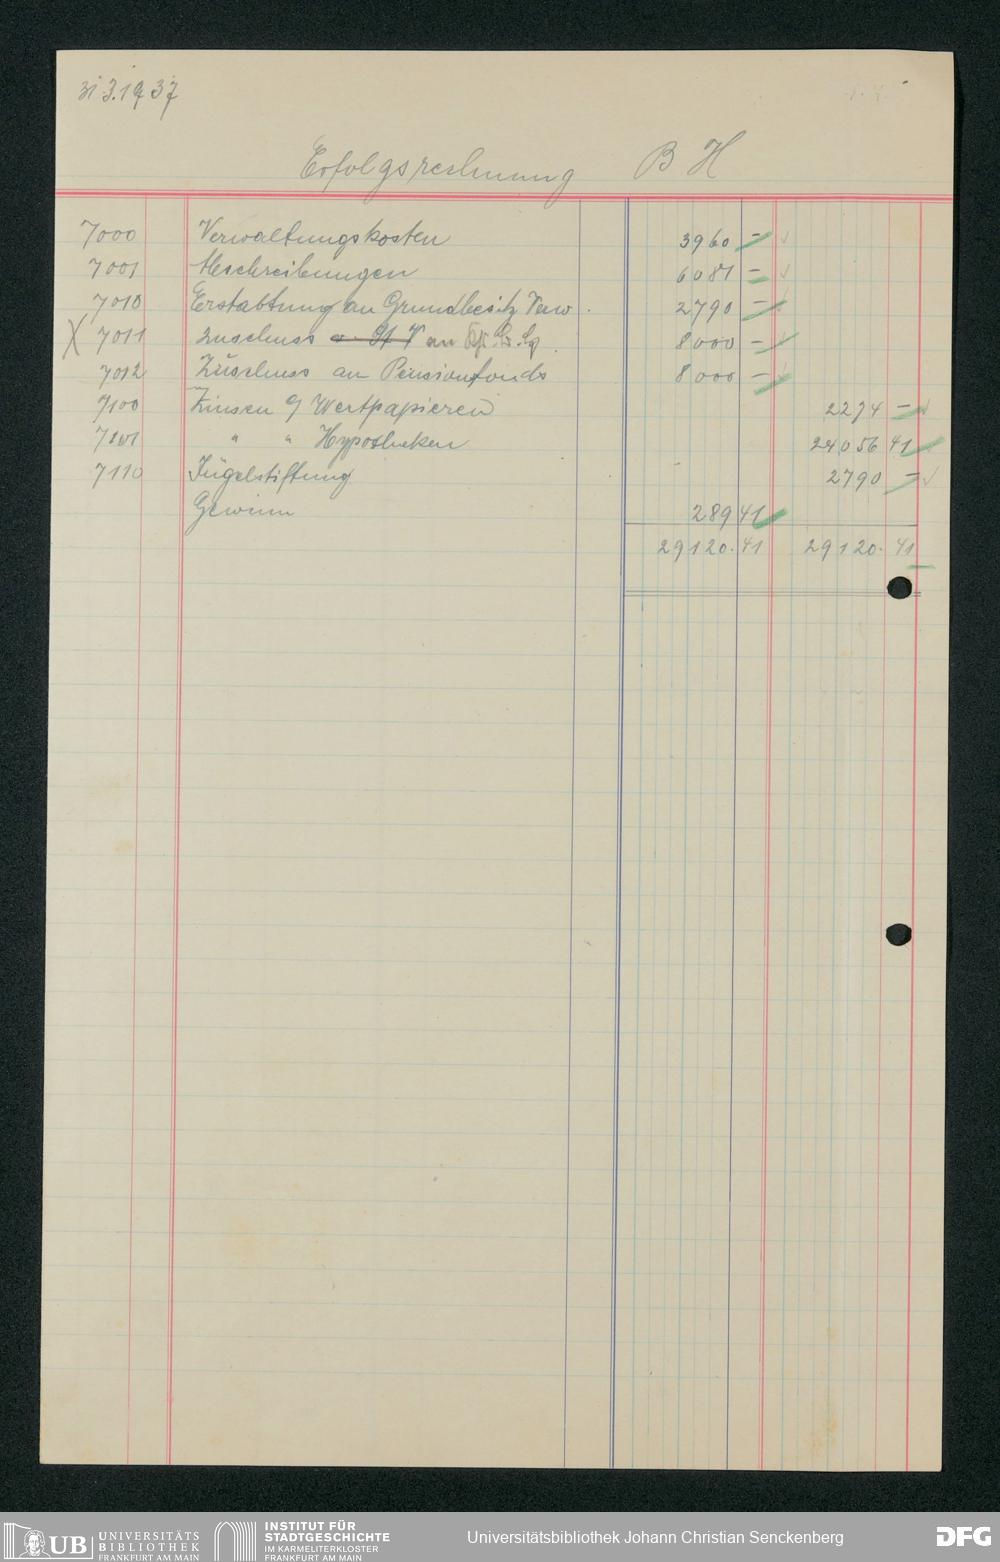 31.3.1937
Erfolgsrechnung B H
7000 Verwaltungskosten 3960 –
7001 Abschreibungen 6081 –
7010 Erstattung an Grundbesitz Verw. 2790 –
X 7011 Zuschuss an 8000 –
7012 Zuschuss an Pensionsfonds 8000 –
7100 Zinsen Wertpapieren 2274 –
7101 " " Hypotheken 24056 41
7110 Jügelstiftung 2790 –
Gewinn 289 41
29120.41 29120.41
UB UNIVERSITÄTS
BIBLIOTHEK
FRANKFURT AM MAIN
INSTITUT FÜR
STADTGESCHICHTE
IM KARMELITERKLOSTER
FRANKFURT AM MAIN
Universitätsbibliothek Johann Christian Senckenberg
DFG